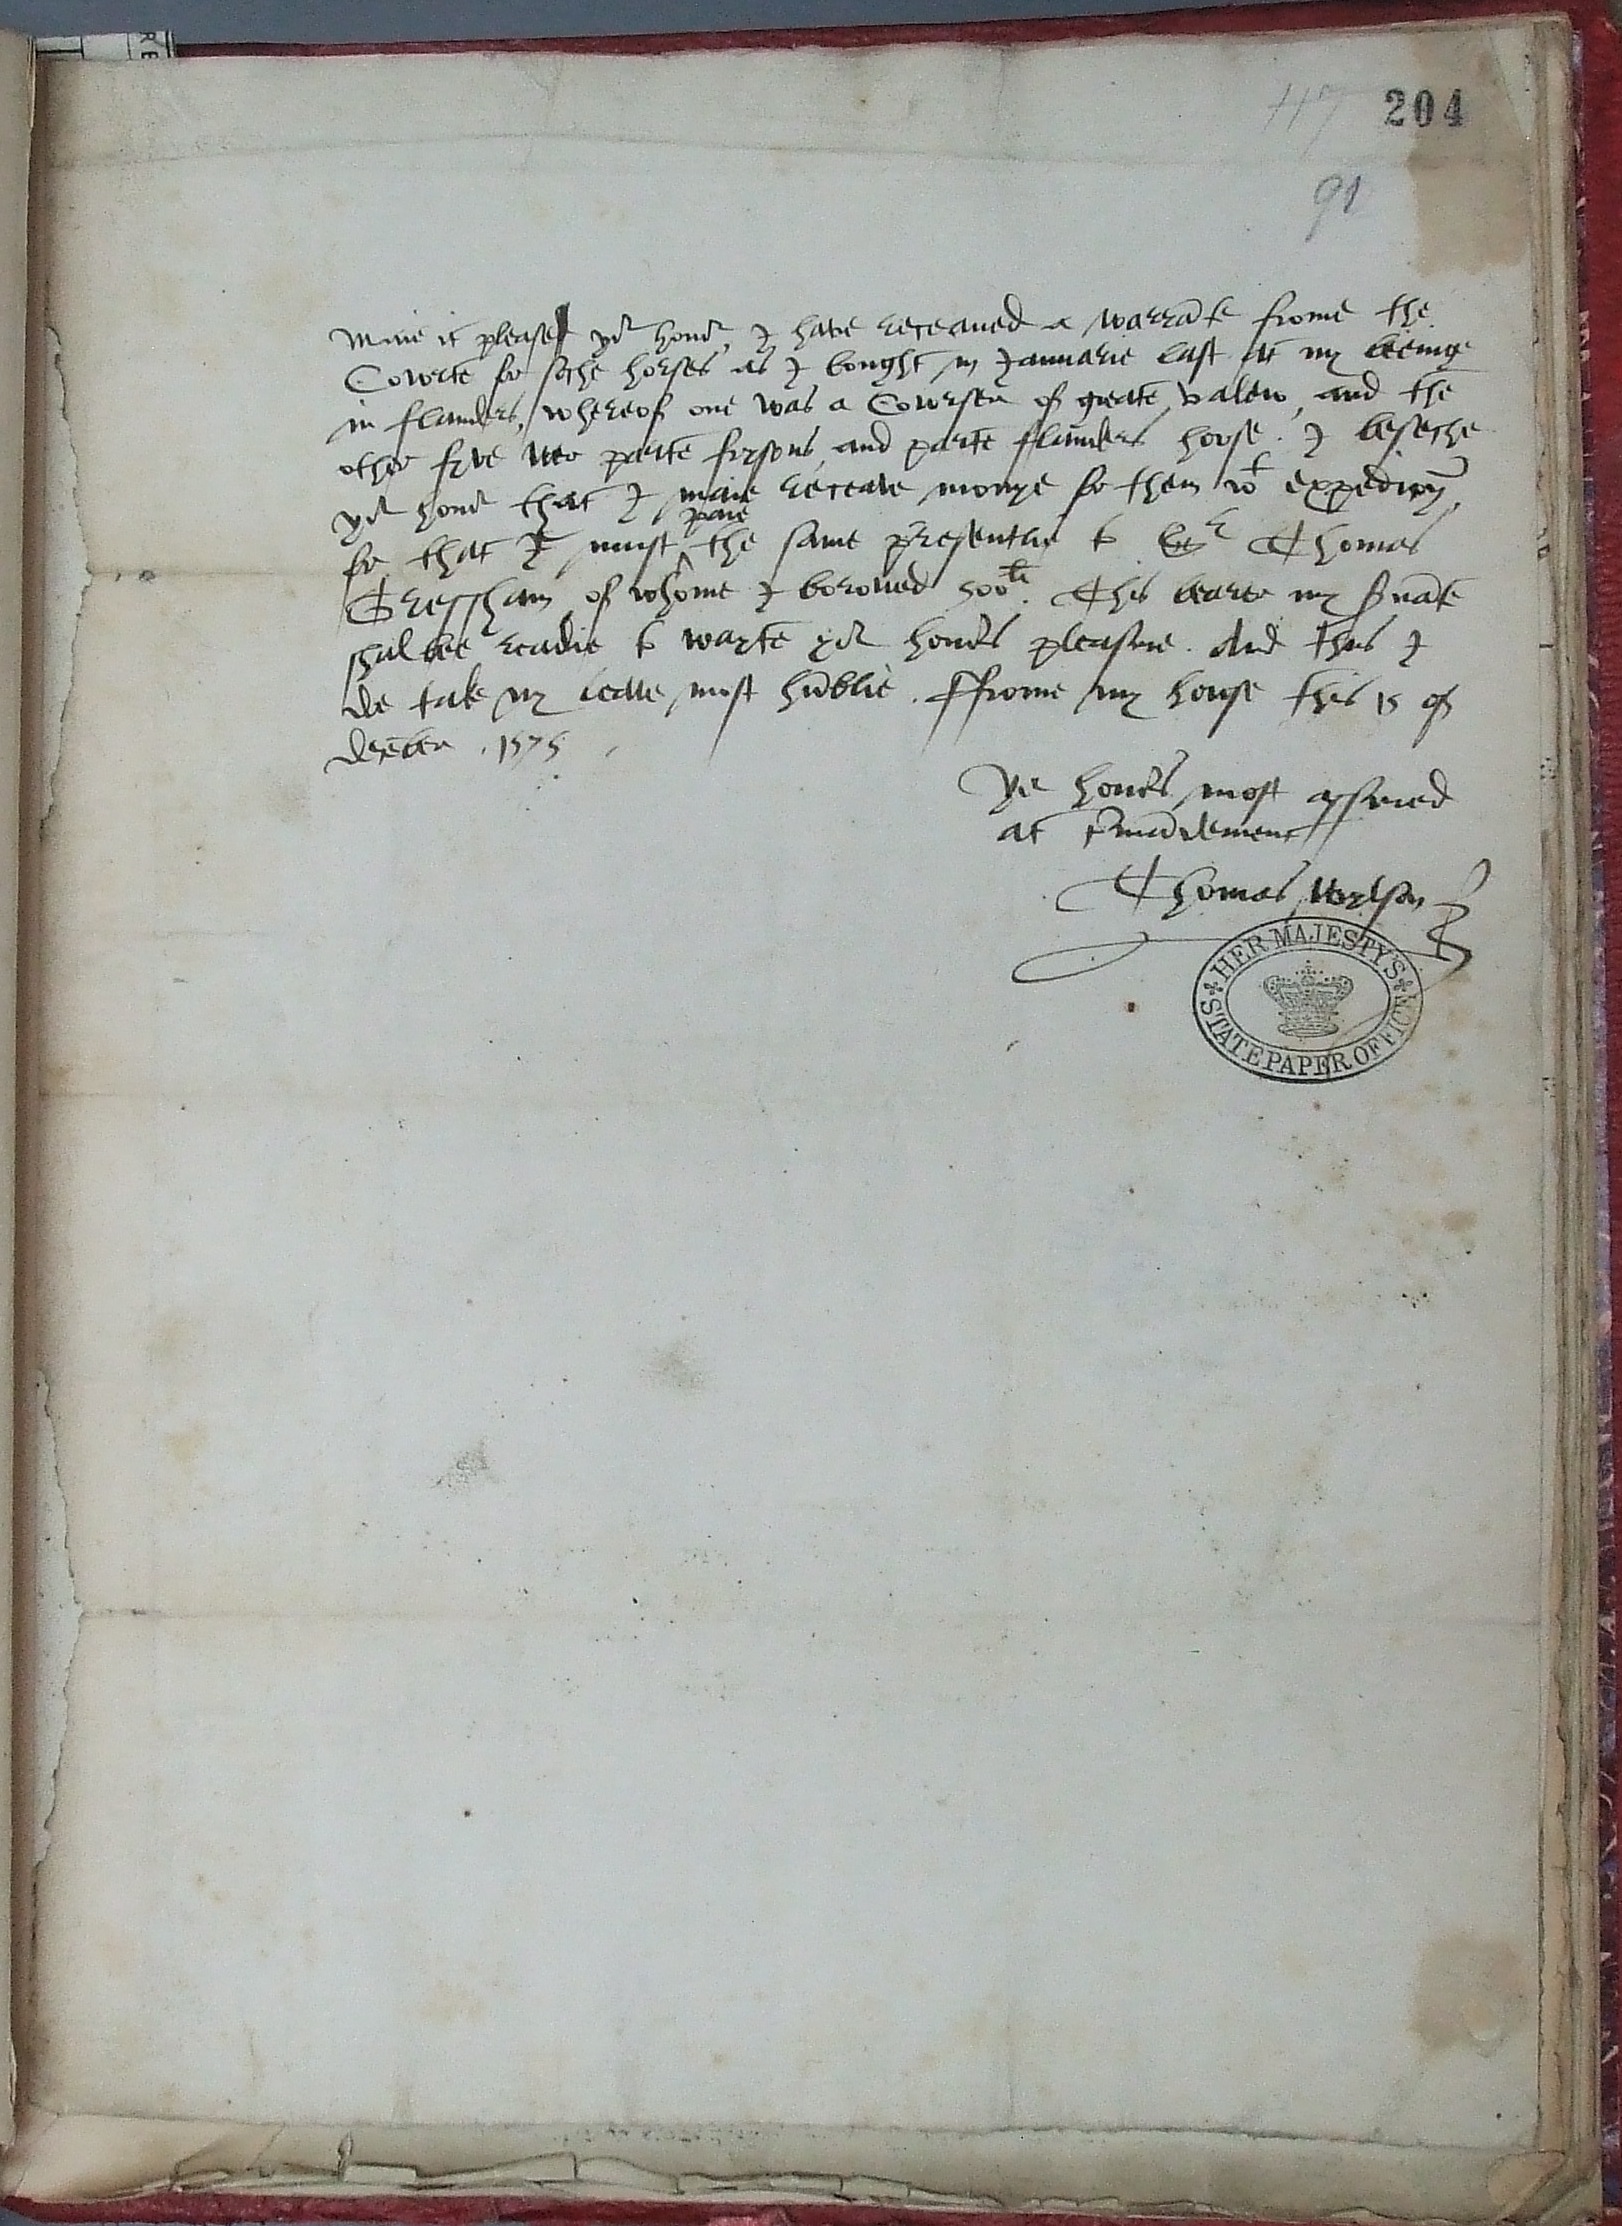 204
117
91
Maie it please yor honor, I have receaued a warrāte frome the
Cowrte for soche horses as I bought in Januarie last at my beinge
in flanders, whereof one was a Cowrser of greate valew, and the
other fyve wer parte frysons, and parte flanders horse. I beseche
yor honor that I maie receave monye for them wt expedicōn,
for that I must ^ the same presentlie to Sr Thomas
paie
Gressham of whome I borowed 500li. This bearer my s̄uāte
shal bee readie to wayte yor honors pleasure. And thus I
do take my leave most hūblie. Ffrome my house this 15 of
decēber .1575
Yor honors most assured
at cōmādement
Thomas Wylson
HER MAJESTY'S
STATE PAPER OFFICE